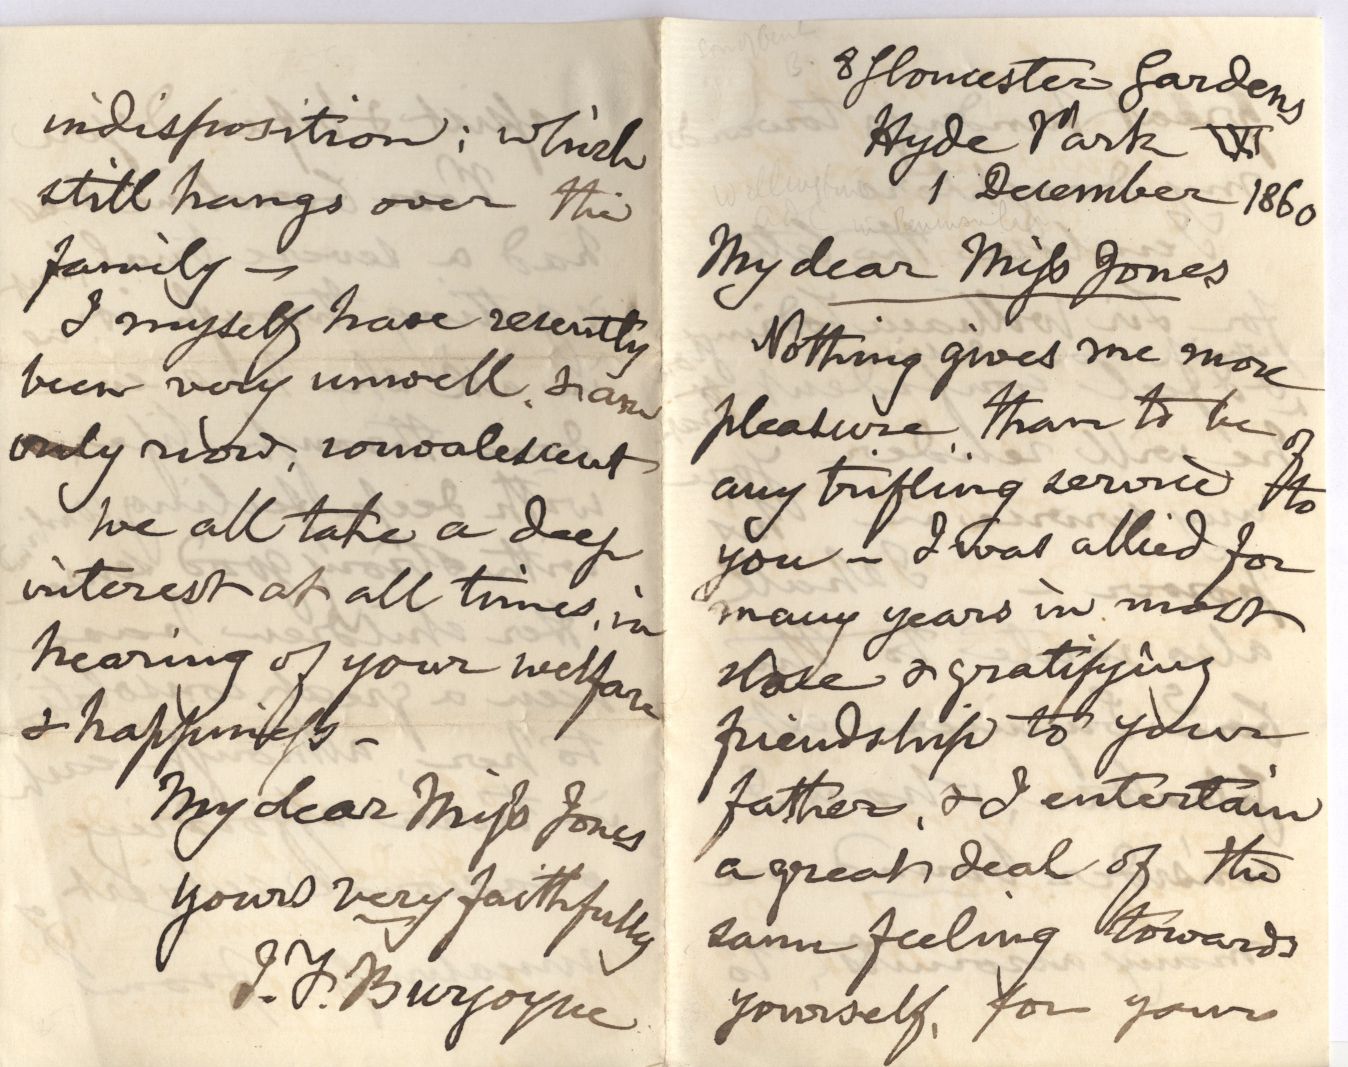 8 Gloucester Gardens
Hyde Park W
1 December 1860
My dear Miss Jones
Nothing gives me more
pleasure, than to be of
any trifling service to
you – I was allied for
many years in most
close & gratifying
friendship to your
father, & I entertain
a great deal of the
same feeling towards
yourself, for your
indisposition; which
still hangs over the
family –
I myself have recently
been very unwell, & am
only now, convalescent
We all take a deep
interest at all times, in
hearing of your welfare
& happiness –
My dear Miss Jones
yours very faithfully
J. F. Burgoyne